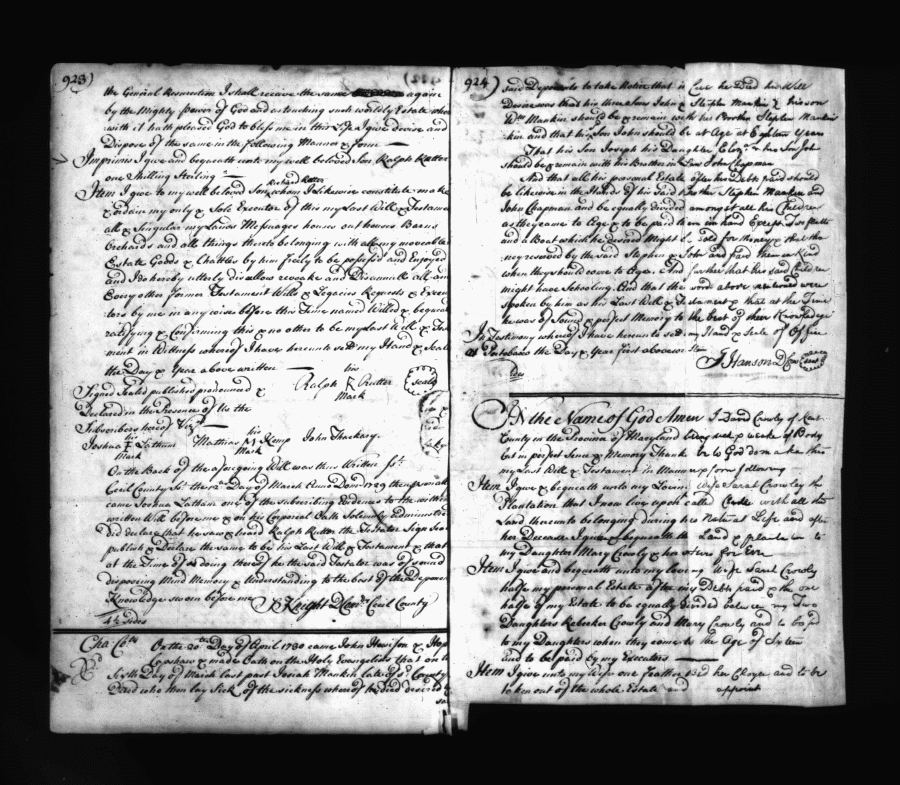 923)
the General Resurrection I shall receive the same again
by the Mighty power of God and as touching such worldly Estate where
with it hath pleased God to bless me in this Life I give devise and
Dispose of the same in the following Manner & form
Imprimis I give and bequeath unto my well beloved Son Ralph Rutter
one Shilling Sterling
Richard Rutter
Item I give to my well beloved Son whom I Likewise constitute make
& ordain my only & Sole Executor of this my Last Will & Testame
all & Singular my Lands Messuages houses out houses Barns
Orchards and all things thereto belonging with all my moveable
Estate Goods & Chattles by him freely to be possess'd and Enjoyed
and I do hereby utterly disallow revoake and Disannull all and
Every other former Testament Wills & Legacies Requests & Execu
tors by me in any wise before this Time named Willed & bequea
ratifying & Confirming this & no other to be my Last Will & Test
ment in Witness whereof I have hereunto sett my Hand & Seale
the Day & Year above written
Signed Sealed published pronounced &
his
Ralph R Rutter
Mark
Seale
Declared in the Presence of Us the
Subscribers hereof Vizt
Joshua Lathum
his
Mark
Mathias M Kemp
his
Mark
John Thackery
On the Back of the aforegoing Will was thus Written st
Cecil County Sst the 12th Day of March Anno Dom 1729 then personall
came Joshua Latham one of the subscribing Evidences to the within
written Will before me & on his Corporal Oath Solemnly administred
did declare that he saw & heard Ralph Rutter the Testator Sign Seal
publish & Declare the same to be his Last Will & Testament & that
at the Time of doing thereof he the said Testator was of sound
disposeing Mind Memory & Understanding to the best of the Deponent
Knowledge sworn before me S Knight DCom Cecil County
4½ sides
Cha Coty On the 20th Day of April 1730 came John Howison &
Capshaw & made Oath on the Holy Evangelists that on the
Sixth Day of March last past Josiah Mankin late of sd County
Deced who then lay Sick of the sickness whereof he died desired
924)
said Deponents to take Notice that in Case he Died his Will
Desire was that his three Sons John & Stephen Mankin & his son
Wm Mankin should be & remain with his Brother Stephen Mankin
kin and that his Son John should be at Age at Eighteen Years
That his Son Joseph his Daughter Elizr & his Son Josh
should be & remain with his Brother in Law John Chapman
And that all his personal Estate after his Debts paid should
be likewise in the Hands of his said Brother Stephen Mankin and
John Chapman and be equally divided amongst all his Children
as they came to Age & to be paid them in hand Except
and a Boat which he desired Might be sold for Money & that the
ney received by the said Stephen & John and paid them in Kind
when they should come to Age. And further that his said Children
might have Schooling. And that the words above mentioned were
spoken by him as his Last Will & Testament & that at the Time
he was of Sound & perfect Memory to the best of their Knowledge
In Testimony whereof I have hereunto sett my Hand & Seale of Office
at Portobacco the Day & Year first above written
J Hanson DCom
Seale
In the Name of God Amen I David Crowly of Kent
County in the Province of Maryland being sick & weake of Body
but in perfect Sence & Memory Thanks be to God do make this
my Last Will & Testament in Manner & form following
Item I give & bequeath unto my Loving Wife Sarah Crowley the
Plantation that I now live upon called with all the
Land thereunto belonging during her Natural Life and after
her Decease I give & bequeath the Land & plantation to
my Daughter Mary Crowly & her heirs for Ever
Item I give and bequeath unto my loveing Wife Sarah Crowly
halfe my personal Estate after my Debts paid & the one
halfe of my Estate to be equally divided between my Two
Daughters Rebeckca Crowly and Mary Crowly and to be paid
to my Daughters when they come to the Age of Sixteen
and to be paid by my Executors
Item I give unto my Wife one Feather Bed her Choyce and to be
taken out of the whole Estate and appoint